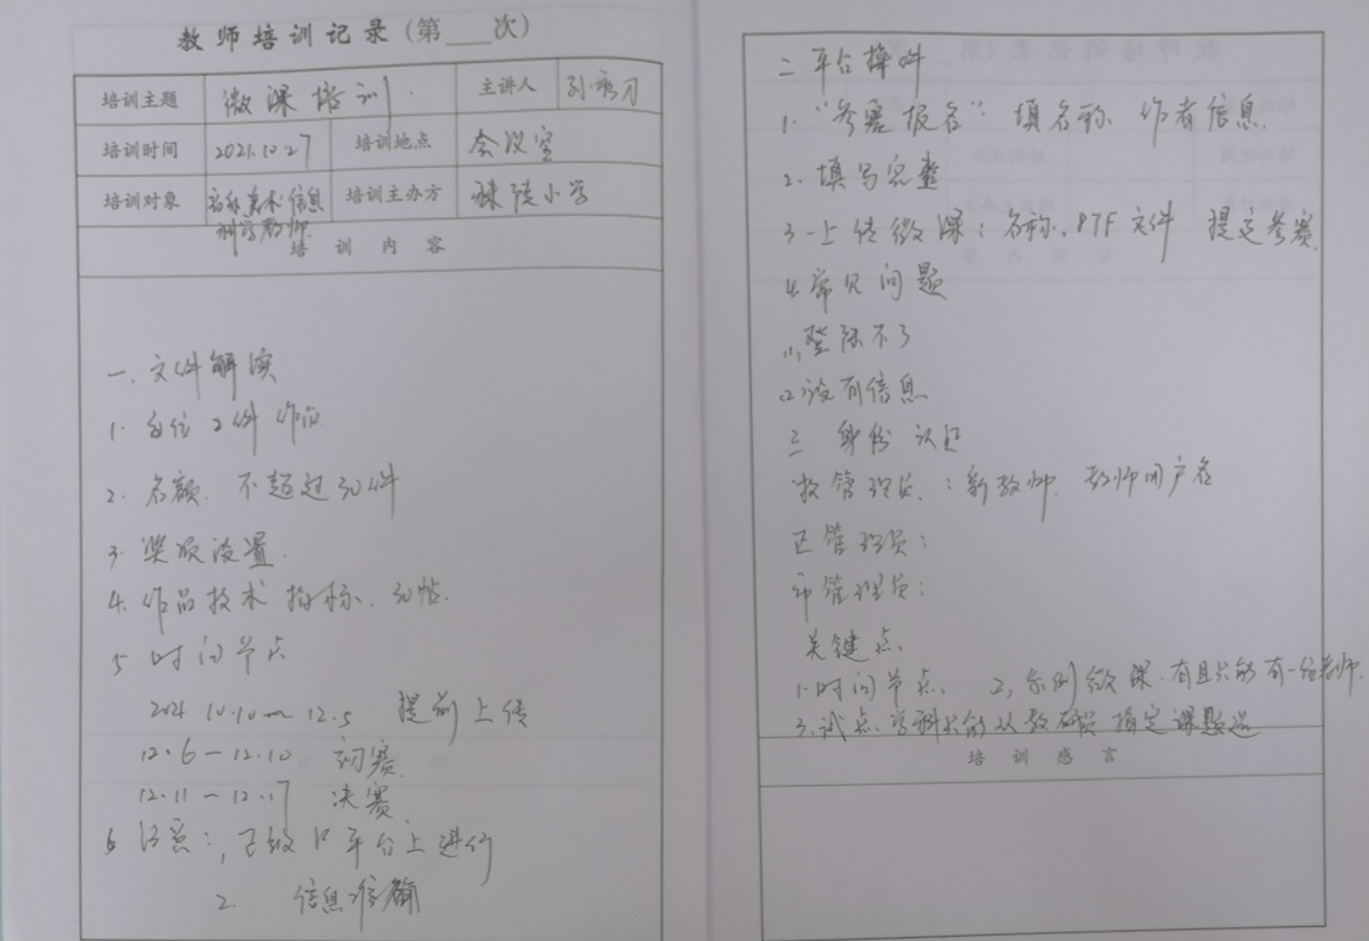 教师培训记录(第___次)
培训主题 微课培训 主讲人 孙
培训时间 2021.10.27 培训地点 会议室
培训对象 美术 信息 科学教师 培训主办方 秣陵小学
培训内容
一. 文件解读
1. 每位2件作品
2. 名额. 不超过30件
3. 奖项设置.
4. 作品技术指标. 30帖.
5 时间节点
2021 10.10— 12.5 提前上传
12.6—12.10 初赛.
12.11—12.17 决赛.
6 注意: 1 平台上进行
2. 信息准确
二 平台操作
1. "参赛报名" 填名称 作者信息.
2. 填写完整
3.上传微课: 名称, PTF文件 提交参赛.
4. 常见问题
(1) 登陆不了
(2) 没有信息
三 身份认证
校管理员: 新教师. 教师用户名
区管理员:
市管理员:
关键点.
1.时间节点. 2, 示例微课. 有且只能有一位老师.
3.试点学科只能从教研员指定课题选
培训感言